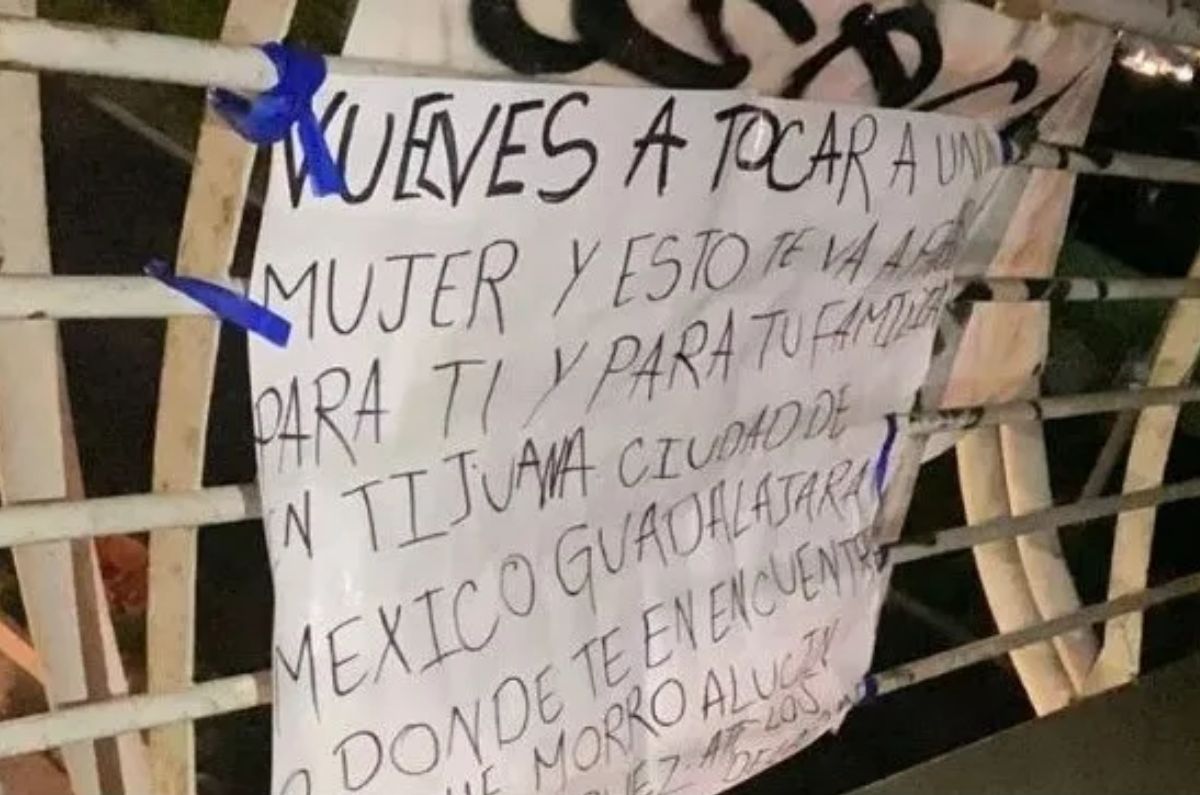 VUELVES A TOCAR A UNA
MUJER Y ESTO TE VA A
PARA TI Y PARA TU FAMILIA
EN TIJUANA CIUDAD DE
MEXICO GUADALAJARA
O DONDE TE EN ENCUENTR
MORRO ALUCIN
ATT LOS
DE